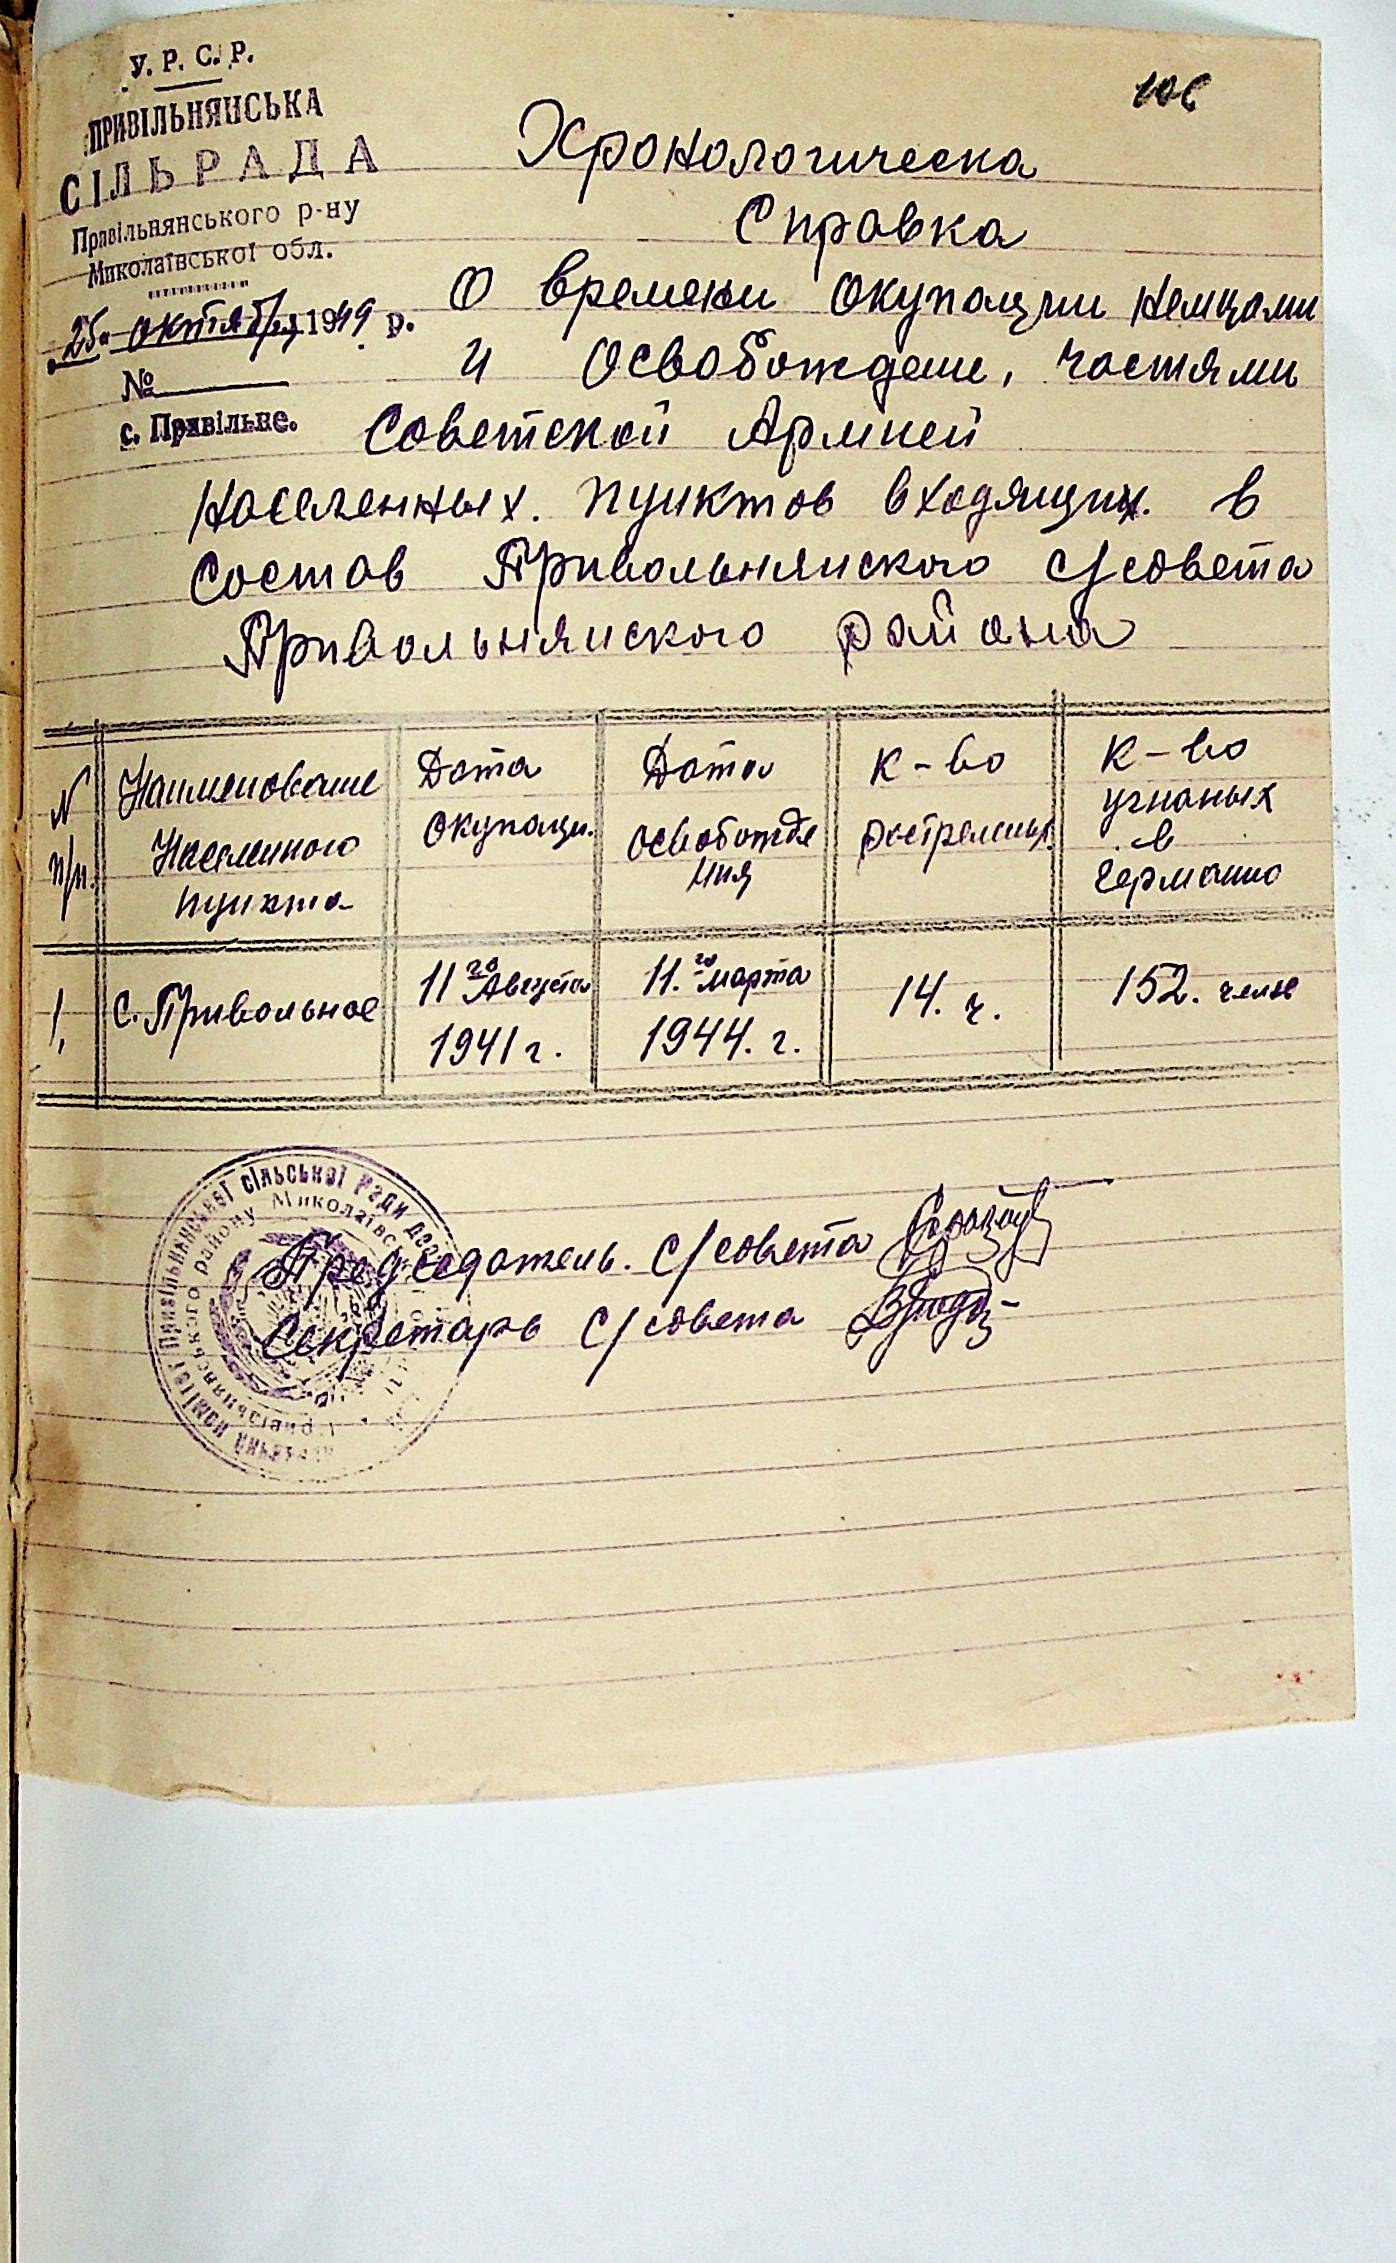 106
У. Р. С. Р.
ПРИВІЛЬНЯНСЬКА
СІЛЬРАДА
Привільнянського р-ну
Миколаївської обл.
"25" октября 1949 р.
№
с. Привільне.
Хронологическа
Справка
О времени окупации немцами
и Освобождение, частями
Советской Армией
Населенных. пунктов входящих. в
состав Привольнянского с/совета
Привольнянского района
N п/п.
Наименование Населенного пункта
Дата окупации.
Дата освобождения
К-во растреляных.
К-во угнаных в Германию
1.
с. Привольное
11го Августа 1941 г.
11.го марта 1944. г.
14. ч.
152. челов
Председатель. с/совета
Секретарь с/совета
Привільнянської сільської Ради
району Миколаївської